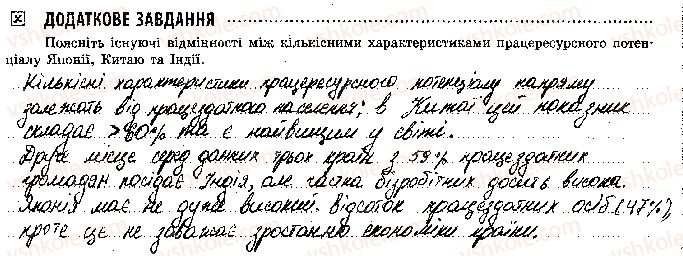 ДОДАТКОВЕ ЗАВДАННЯ
Поясніть існуючі відмінності між кількісними характеристиками працересурсного потен-
ціалу Японії, Китаю та Індії.
Кількісні характеристики працересурсного потенціалу напряму
залежать від працездатного населення; в Китаї цей показник
складає >80% та є найвищим у світі.
Друге місце серед данних трьох країн з 59% працездатних
громадян посідає Індія, але частка безробітних досить висока.
Японія має не дуже високий відсоток працездатних осіб (47%),
проте це не заважає зростанню економіки країни.